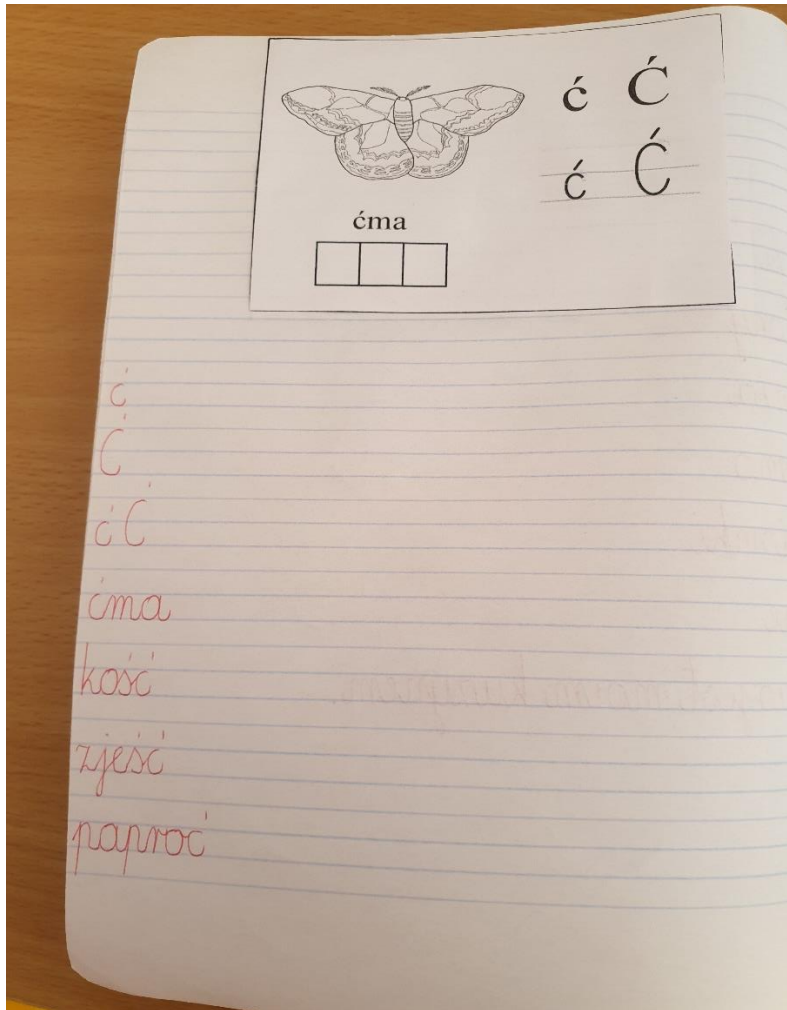 ć Ć
ć Ć
ćma
ć
Ć
ć Ć
ćma
kość
zjeść
paproć